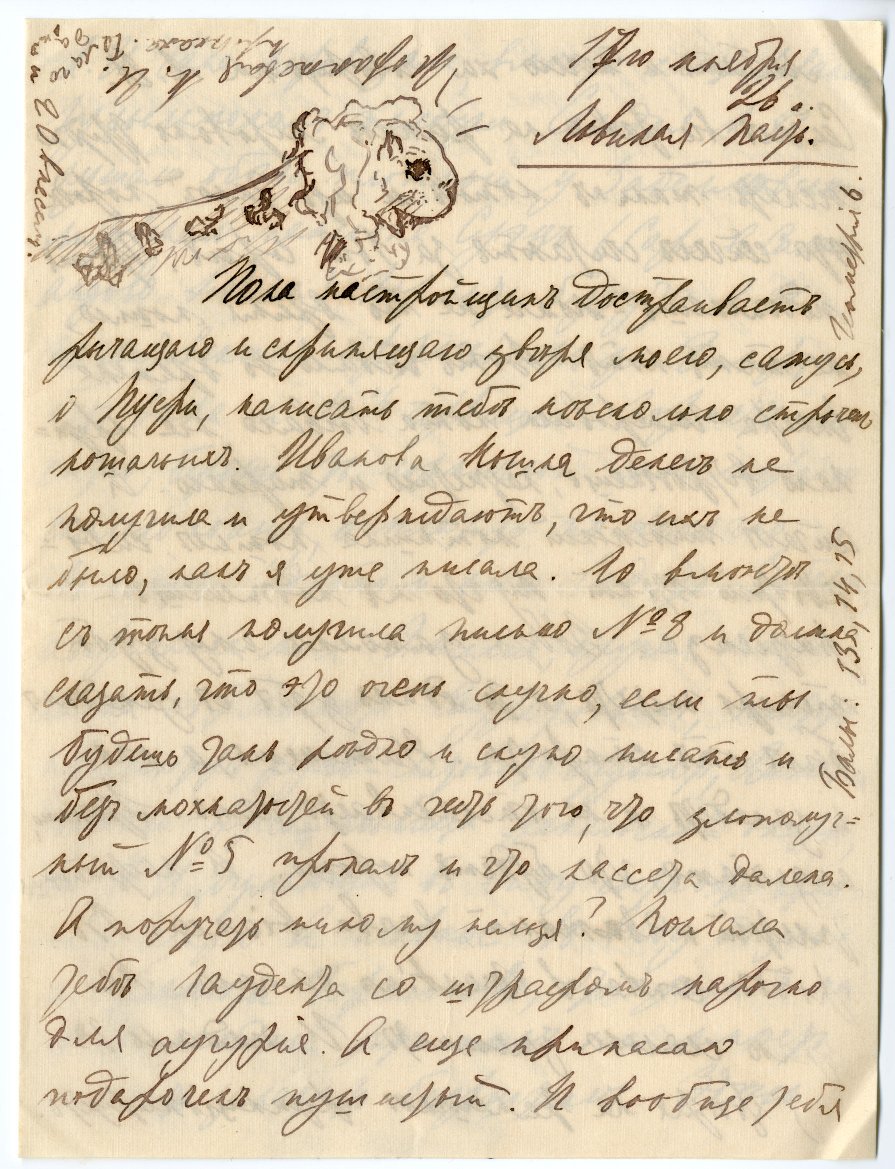 17го ноября
26 г.
Львиная пастр.
Пока настройщикъ достраиваетъ
рычащаго и скрипящаго звѣря моего, сажусь,
о Пуси, написать тебѣ нѣсколько строчекъ
кошачьихъ. Иванова Кошка денегъ не
получила и утверждаютъ, что ихъ не
было, какъ я уже писала. Но вмѣстѣ
съ тѣмъ получила письмо № 8 и должна
сказать, что это очень скучно, если ты
будешь такъ рѣдко и скупо писать и
безъ мохнатостей въ честь того, что злополуч=
ный № 5 пропалъ и что кассета далека.
А поручить никому нельзя? Послала
тебѣ студента со штрафомъ нарочно
для
А еще припасаю
подарочекъ пушистый. И вообще тебя
Баллы: 13а, 14, 15